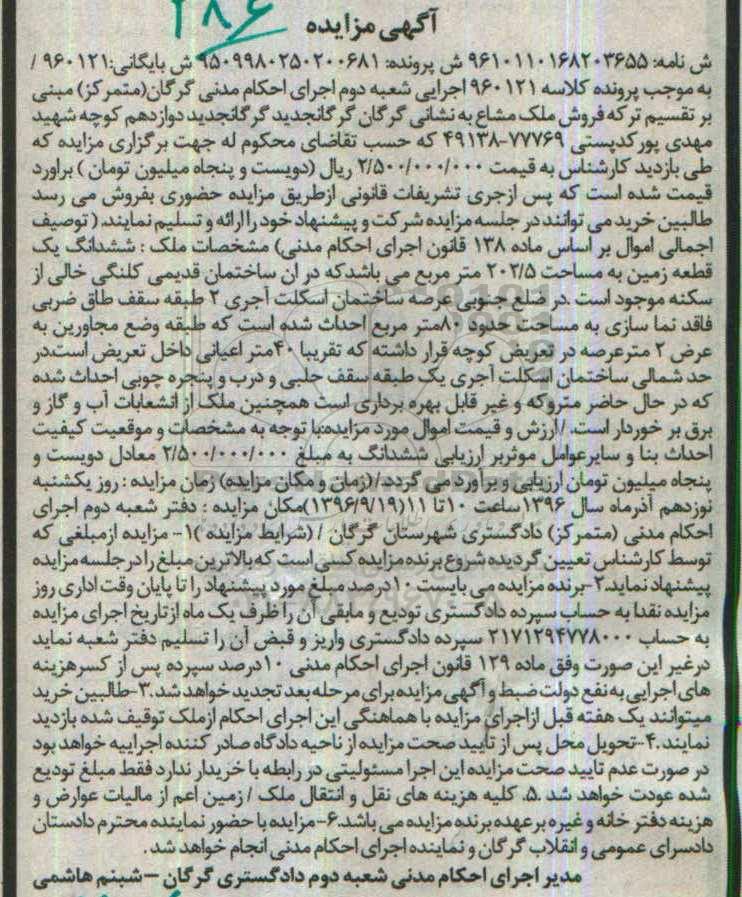 ۲۸۶
آگهی مزایده
ش نامه: ۹۶۱۰۱۱۰۱۶۸۲۰۳۶۵۵ ش پرونده: ۹۵۰۹۹۸۰۲۵۰۲۰۰۶۸۱ ش بایگانی:۹۶۰۱۲۱ /
به موجب پرونده کلاسه ۹۶۰۱۲۱ اجرایی شعبه دوم اجرای احکام مدنی گرگان(متمرکز) مبنی
بر تقسیم ترکه فروش ملک مشاع به نشانی گرگان گرگانجدید گرگانجدید دوازدهم کوچه شهید
مهدی پور کدپستی ۷۷۷۶۹-۴۹۱۳۸ که حسب تقاضای محکوم له جهت برگزاری مزایده که
طی بازدید کارشناس به قیمت ۲/۵۰۰/۰۰۰/۰۰۰ ریال (دویست و پنجاه میلیون تومان ) براورد
قیمت شده است که پس ازجری تشریفات قانونی ازطریق مزایده حضوری بفروش می رسد
طالبین خرید می توانند در جلسه مزایده شرکت و پیشنهاد خود را ارائه و تسلیم نمایند. ( توصیف
اجمالی اموال بر اساس ماده ۱۳۸ قانون اجرای احکام مدنی) مشخصات ملک : ششدانگ یک
قطعه زمین به مساحت ۲۰۲/۵ متر مربع می باشدکه در ان ساختمان قدیمی کلنگی خالی از
سکنه موجود است .در ضلع جنوبی عرصه ساختمان اسکلت آجری ۲ طبقه سقف طاق ضربی
فاقد نما سازی به مساحت حدود ۸۰متر مربع احداث شده است که طبقه وضع مجاورین به
عرض ۲ مترعرصه در تعریض کوچه قرار داشته که تقریبا ۴۰متر اعیانی داخل تعریض است.در
حد شمالی ساختمان اسکلت آجری یک طبقه سقف حلبی و درب و پنجره چوبی احداث شده
که در حال حاضر متروکه و غیر قابل بهره برداری است همچنین ملک از انشعابات آب و گاز و
برق بر خوردار است. / ارزش و قیمت اموال مورد مزایده:با توجه به مشخصات و موقعیت کیفیت
احداث بنا و سایرعوامل موثربر ارزیابی ششدانگ به مبلغ ۲/۵۰۰/۰۰۰/۰۰۰ معادل دویست و
پنجاه میلیون تومان ارزیابی و برآورد می گردد./(زمان و مکان مزایده) زمان مزایده : روز یکشنبه
نوزدهم آذرماه سال ۱۳۹۶ساعت ۱۰تا ۱۱(۱۳۹۶/۹/۱۹)مکان مزایده : دفتر شعبه دوم اجرای
احکام مدنی (متمرکز) دادگستری شهرستان گرگان / (شرایط مزایده )۱- مزایده ازمبلغی که
توسط کارشناس تعیین گردیده شروع برنده مزایده کسی است که بالاترین مبلغ را در جلسه مزایده
پیشنهاد نماید.۲-برنده مزایده می بایست ۱۰درصد مبلغ مورد پیشنهاد را تا پایان وقت اداری روز
مزایده نقدا به حساب سپرده دادگستری تودیع و مابقی آن را ظرف یک ماه ازتاریخ اجرای مزایده
به حساب ۲۱۷۱۲۹۴۷۷۸۰۰۰ سپرده دادگستری واریز و قبض آن را تسلیم دفتر شعبه نماید
درغیر این صورت وفق ماده ۱۲۹ قانون اجرای احکام مدنی ۱۰درصد سپرده پس از کسرهزینه
های اجرایی به نفع دولت ضبط و آگهی مزایده برای مرحله بعد تجدید خواهد شد.۳-طالبین خرید
میتوانند یک هفته قبل ازاجرای مزایده با هماهنگی این اجرای احکام ازملک توقیف شده بازدید
نمایند.۴-تحویل محل پس از تایید صحت مزایده از ناحیه دادگاه صادر کننده اجراییه خواهد بود
در صورت عدم تایید صحت مزایده این اجرا مسئولیتی در رابطه با خریدار ندارد فقط مبلغ تودیع
شده عودت خواهد شد .۵. کلیه هزینه های نقل و انتقال ملک / زمین اعم از مالیات عوارض و
هزینه دفتر خانه و غیره بر عهده برنده مزایده می باشد.۶-مزایده با حضور نماینده محترم دادستان
دادسرای عمومی و انقلاب گرگان و نماینده اجرای احکام مدنی انجام خواهد شد .
مدیر اجرای احکام مدنی شعبه دوم دادگستری گرگان –شبنم هاشمی